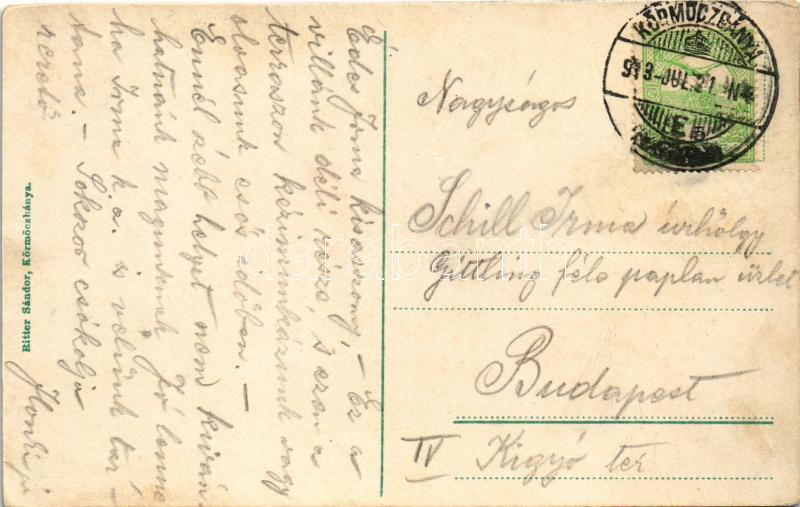 Édes Irma kisasszony! – Ez a
villánk déli része, s ezen a
teraszon kézimunkázunk vagy
olvasunk esős időben. –
Ennél szebb helyet nem kíván-
hatnánk magunknak. Jó lenne
ha Irma k.a. is velünk tar-
tana. – Sokszor csókolja
szerető
Ritter Sándor, Körmöczbánya.
KÖRMÖCZBÁNYA
913-JUL.21
Nagyságos
Schill Irma úrhölgy
Gittling féle paplan üzlet
Budapest
IV Kigyó tér
darabanth